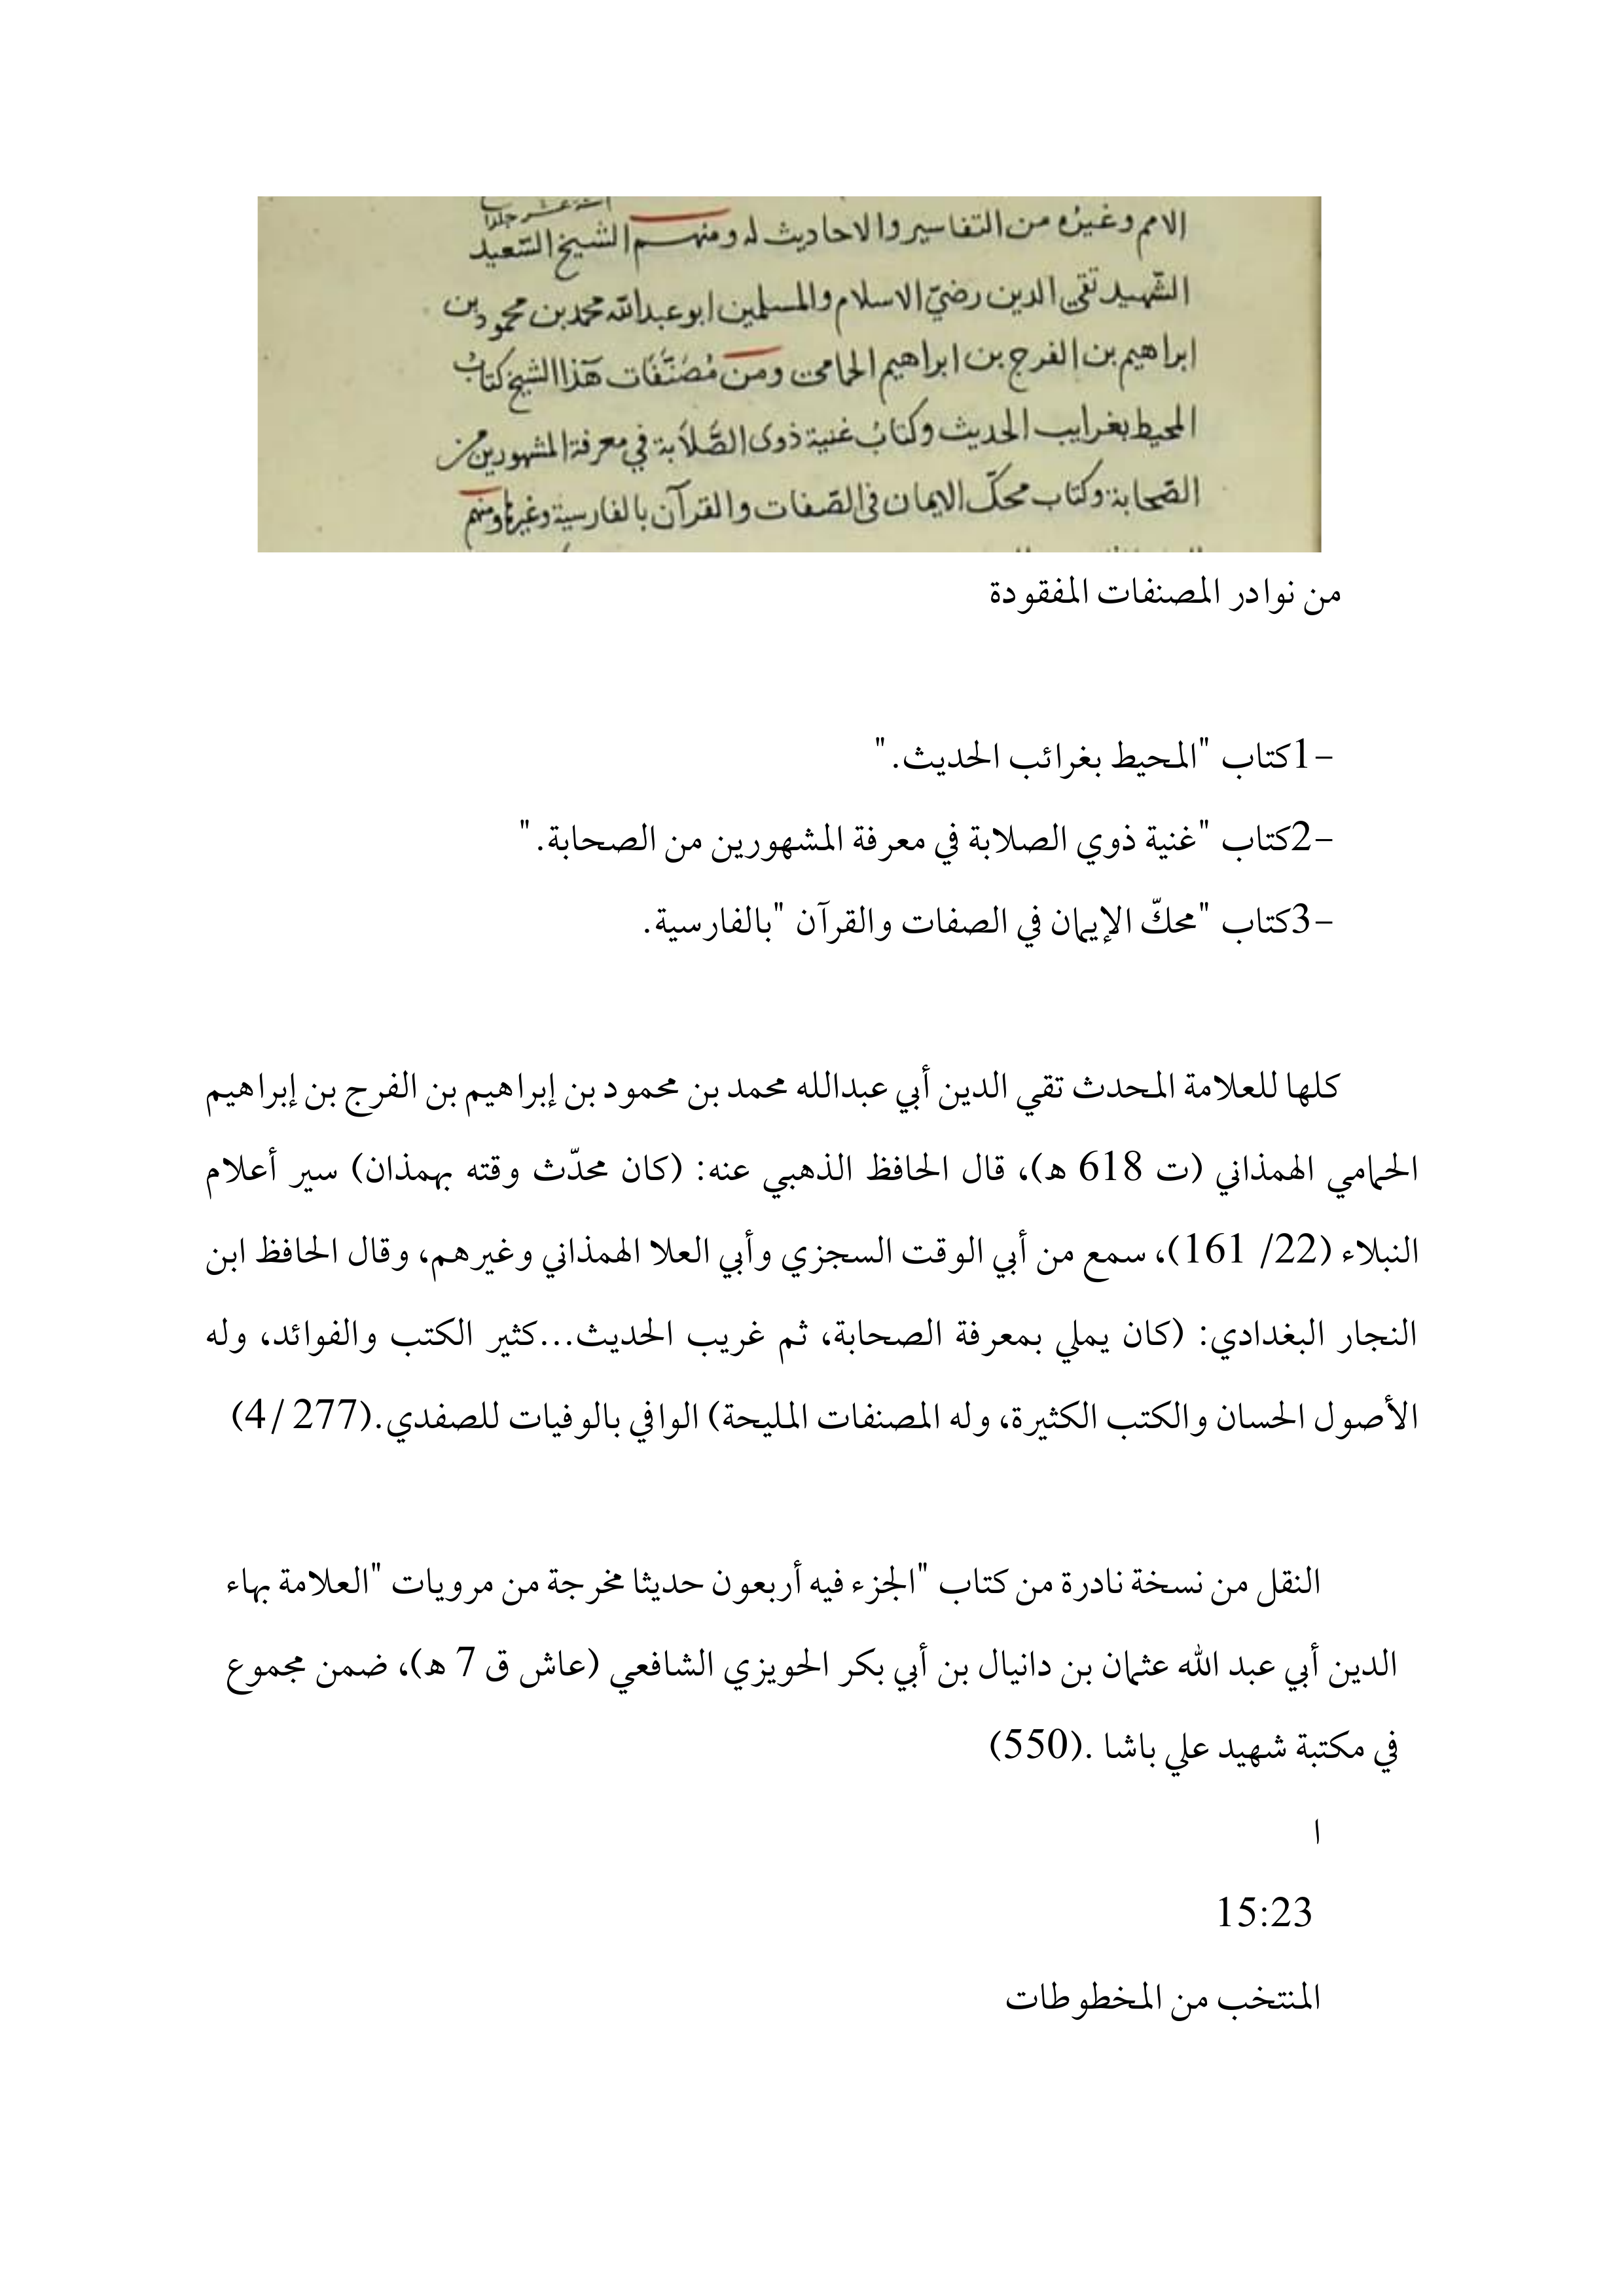 اثنا عشر جلدا
الامم وغيره من التفاسير والاحاديث له ومنهم الشيخ السّعيد
الشّهيد تقي الدين رضيّ الاسلام والمسلمين ابو عبدالله محمد بن محمود بن
ابراهيم بن الفرج بن ابراهيم الحمامي ومن مُصَنَّفَات هَذا الشيخ كتابُ
المحيط بغرايب الحديث وكتابُ غنية ذوى الصَّلاَبة في معرفة المشهورين من
الصّحابة وكتاب محكّ الايمان فى الصّفات والقرآن بالفارسية وغيرها ومنهم
من نوادر المصنفات المفقودة
-1كتاب "المحيط بغرائب الحديث."
-2كتاب "غنية ذوي الصلابة في معرفة المشهورين من الصحابة."
-3كتاب "محكّ الإيمان في الصفات والقرآن "بالفارسية.
كلها للعلامة المحدث تقي الدين أبي عبدالله محمد بن محمود بن إبراهيم بن الفرج بن إبراهيم
الحمامي الهمذاني (ت 618 ه)، قال الحافظ الذهبي عنه: (كان محدّث وقته بهمذان) سير أعلام
النبلاء (22/ 161)، سمع من أبي الوقت السجزي وأبي العلا الهمذاني وغيرهم، وقال الحافظ ابن
النجار البغدادي: (كان يملي بمعرفة الصحابة، ثم غريب الحديث...كثير الكتب والفوائد، وله
الأصول الحسان والكتب الكثيرة، وله المصنفات المليحة) الوافي بالوفيات للصفدي.(4/277)
النقل من نسخة نادرة من كتاب "الجزء فيه أربعون حديثا مخرجة من مرويات "العلامة بهاء
الدين أبي عبد الله عثمان بن دانيال بن أبي بكر الحويزي الشافعي (عاش ق 7 ه)، ضمن مجموع
في مكتبة شهيد علي باشا .(550)
ا
15:23
المنتخب من المخطوطات